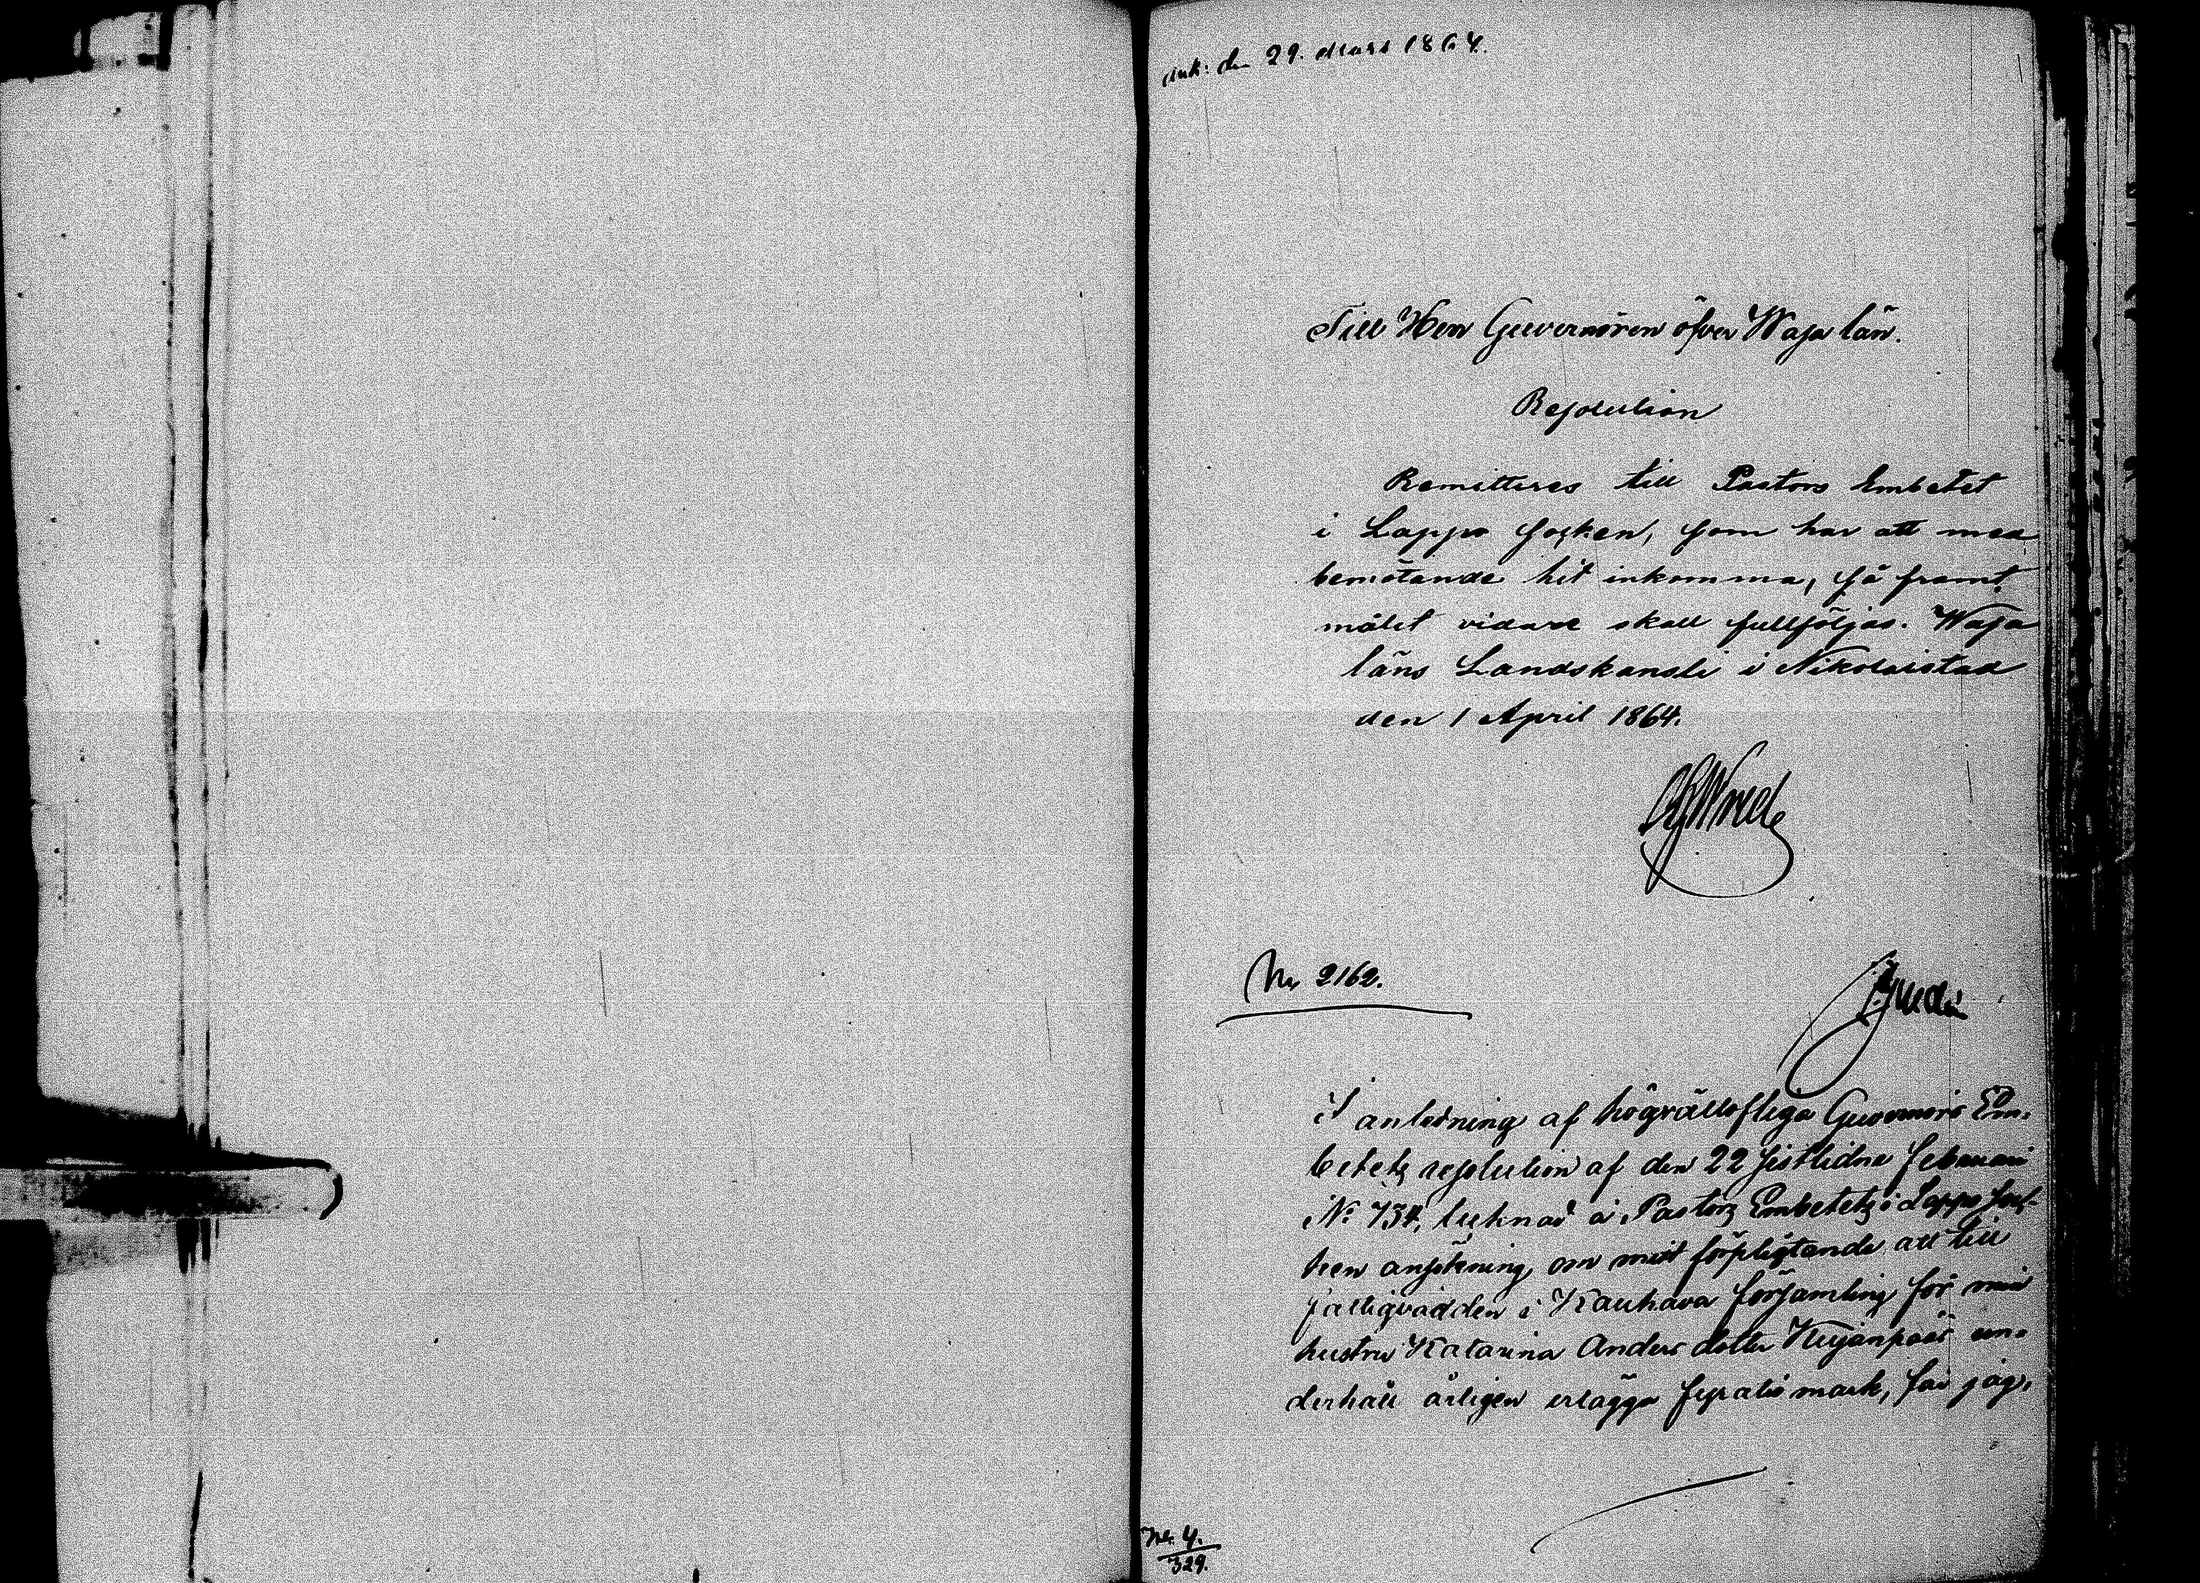 Ank: den 29. Mars 1864.
Till Herr Guvernören öfver Wasa län.
Resolution
Remitteres till Pastors Embetet
i Lappo socken, som har att med
bemötande hit inkomma, så framt
målet vidare skall fullföljas. Wasa
läns Landskansli i Nikolaistad
den 1 April 1864.
Wrede
No 2162.
I anledning af högvälloflige Guvernörs Em-
betets resolution af den 22 sistlidne februari
No 734, tecknad å Pastors Embetets i Lappo soc-
ken ansökning om mitt förpligtande att till
fattigvården i Kauhava församling för min
hustru Katarina Anders dotter Kujanpääs un-
derhåll årligen erlägga fyratio mark, får jag,
No. 4.
329.